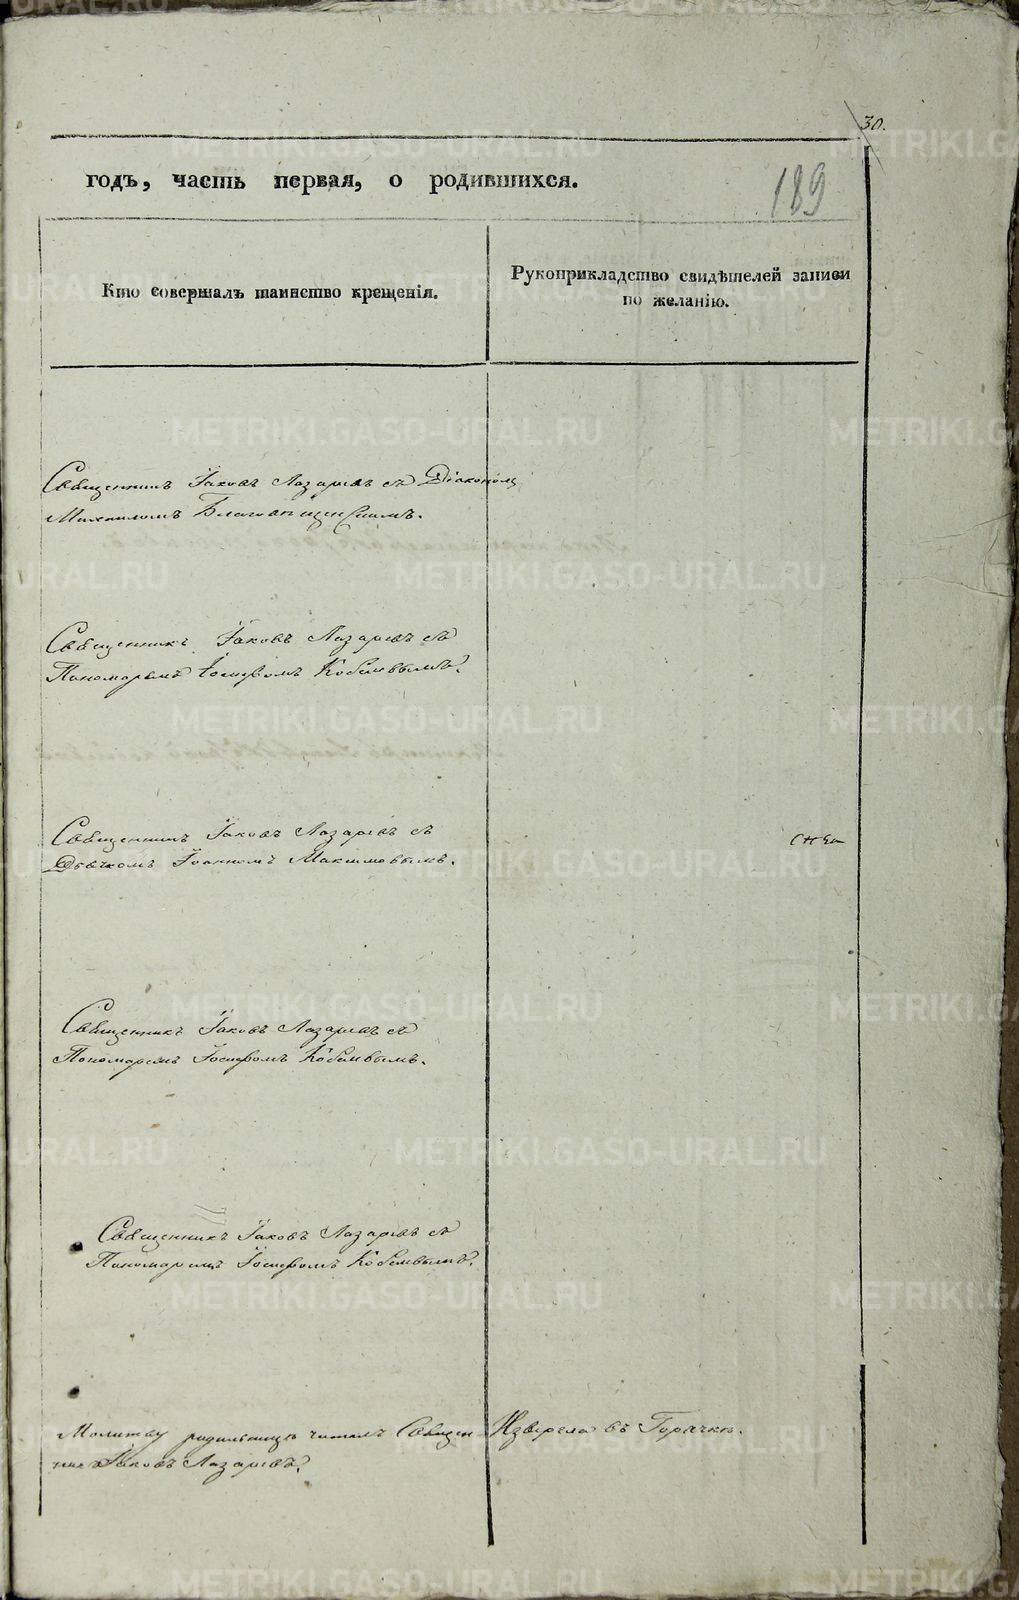 30.
189
годъ, часть первая, о родившихся.
Кто совершалъ таинство крещенія.
Рукоприкладство свидѣтелей записи
по желанію.
Священникъ Іаковъ Лазаревъ съ Діакономъ
Михаиломъ Благовѣщенскимъ.
Священникъ Іаковъ Лазаревъ съ
Пономаремъ Іосифомъ
Священникъ Іаковъ Лазаревъ съ
Дьячкомъ Іоанномъ Максимовымъ.
Священникъ Іаковъ Лазаревъ съ
Пономаремъ Іосифомъ
Священникъ Іаковъ Лазаревъ съ
Пономаремъ Іосифомъ
Молитву родильницѣ читалъ Священ-
никъ Іаковъ Лазаревъ.
въ Горячкѣ.
METRIKI.GASO-URAL.RU